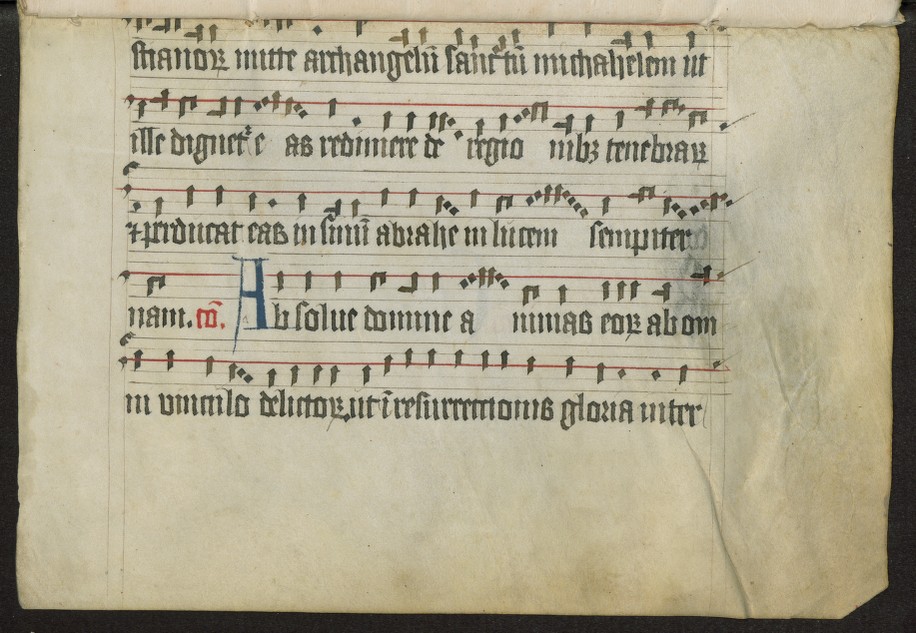 stianoꝝ mitte archangelū sanctū michahelem ut
ille dignet᷑ e as redimere de regio nibꝫ tenebraꝝ
⁊ perducat eas in sinū abrahe in lucem sempiter
nam. tō. Ab solue domine a nimas eoꝝ ab om
ni vinculo delictoꝝ. ut ī resurrectionis gloria inter